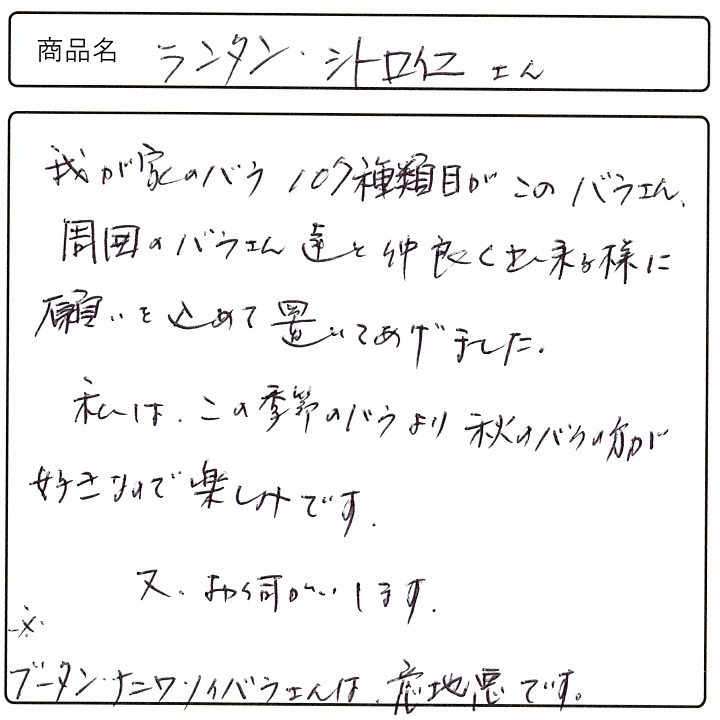 商品名 ランタン・シトロイユ さん
我が家のバラ 107種類目が このバラさん、
周囲のバラさん達と仲良く出来る様に
願いを込めて置いてあげました。
私は、この季節のバラより秋のバラの方が
好きなので楽しみです。
又、お伺いします。
※
ブータン・ナニワ・ノイバラさんは、意地悪です。